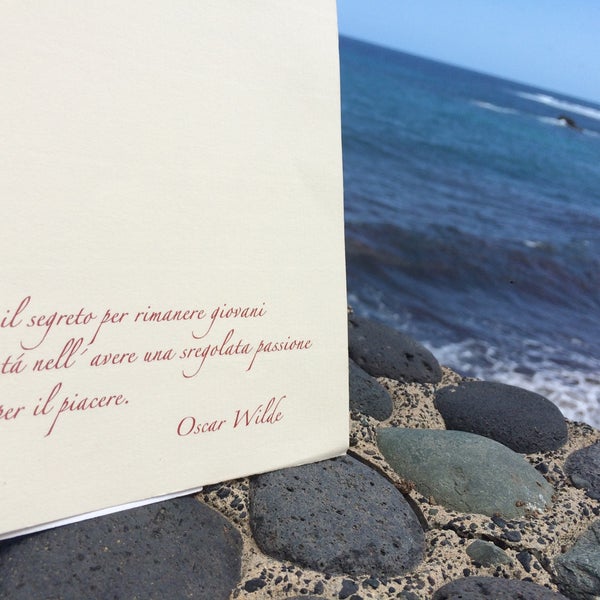 il segreto per rimanere giovani
tá nell´avere una sregolata passione
per il piacere.
Oscar Wilde